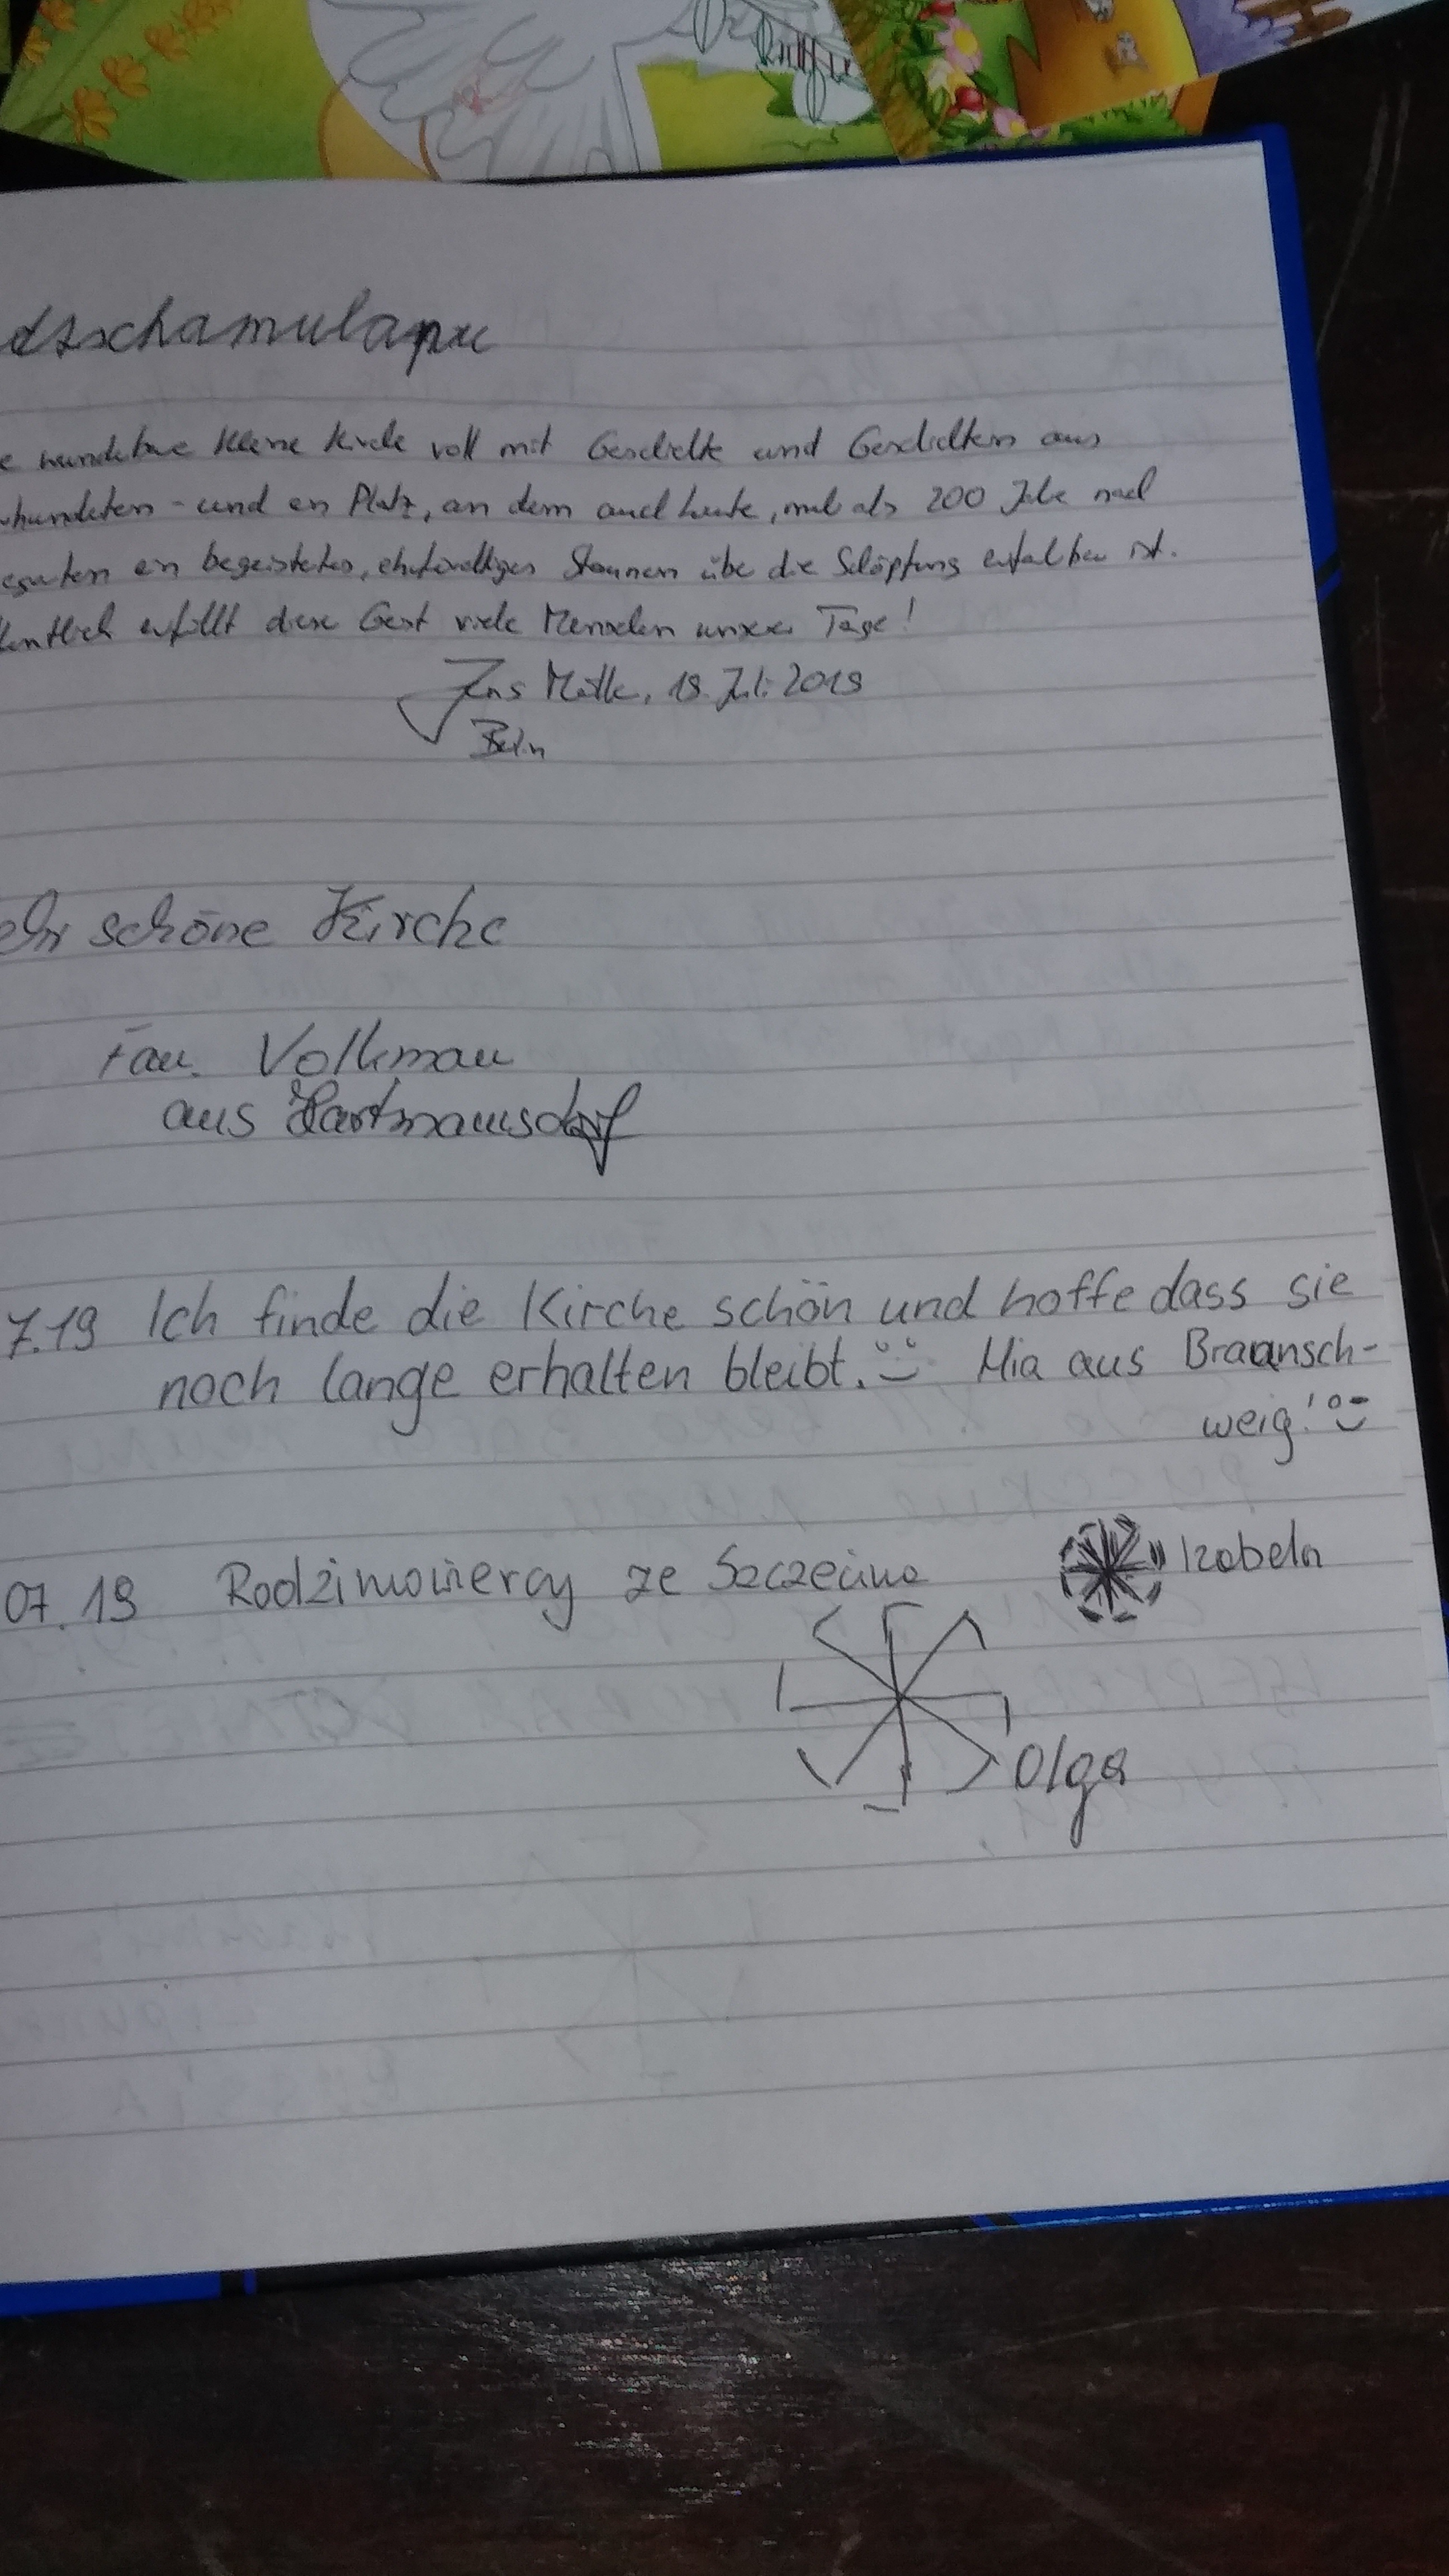 e wunderbare kleine Kirche voll mit Geschichte und Geschichten aus
hunderten - und ein Platz, an dem auch heute, mehr als 200 Jahre nach
ein begeistertes, ehrfürchtiges Staunen über die Schöpfung erfahrbar ist.
entlich erfüllt diese Geist viele Menschen unserer Tage!
Jens 18. Juli 2019
Berlin
ehr schöne Kirche
Fam. Volkmann
aus Hartmannsdorf
7.19 Ich finde die Kirche schön und hoffe dass sie
noch lange erhalten bleibt. Mia aus Braunsch-
weig!
07.19 Rodzimowiercy ze Szczecina Izabela
Olga